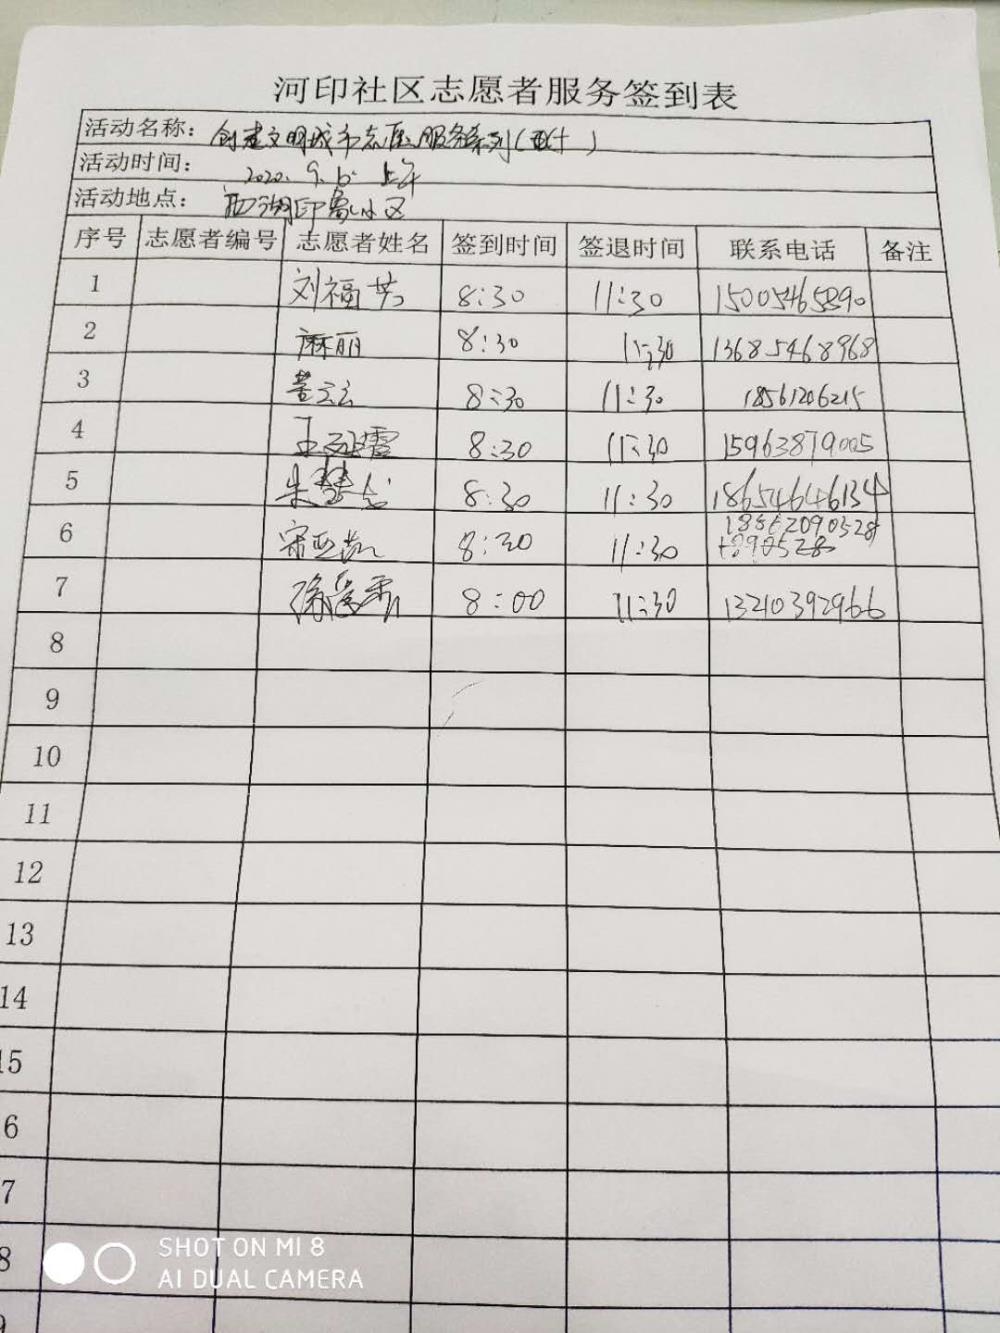 河印社区志愿者服务签到表
活动名称：创建文明城市志愿服务系列（四十）
活动时间：2020.9.6. 上午
活动地点：西湖印象小区
序号 志愿者编号 志愿者姓名 签到时间 签退时间 联系电话 备注
1 刘福芳 8:30 11:30 15005465890
2 麻丽 8:30 11:30 13685468968
3 董云云 8:30 11:30 18561206215
4 王 霞 8:30 11:30 15963879005
5 朱 8:30 11:30 18654646134
6 宋亚凯 8:30 11:30
7 徐爱 8:00 11:30 13210392966
8
9
10
11
12
13
14
15
6
7
8
9
SHOT ON MI 8
AI DUAL CAMERA